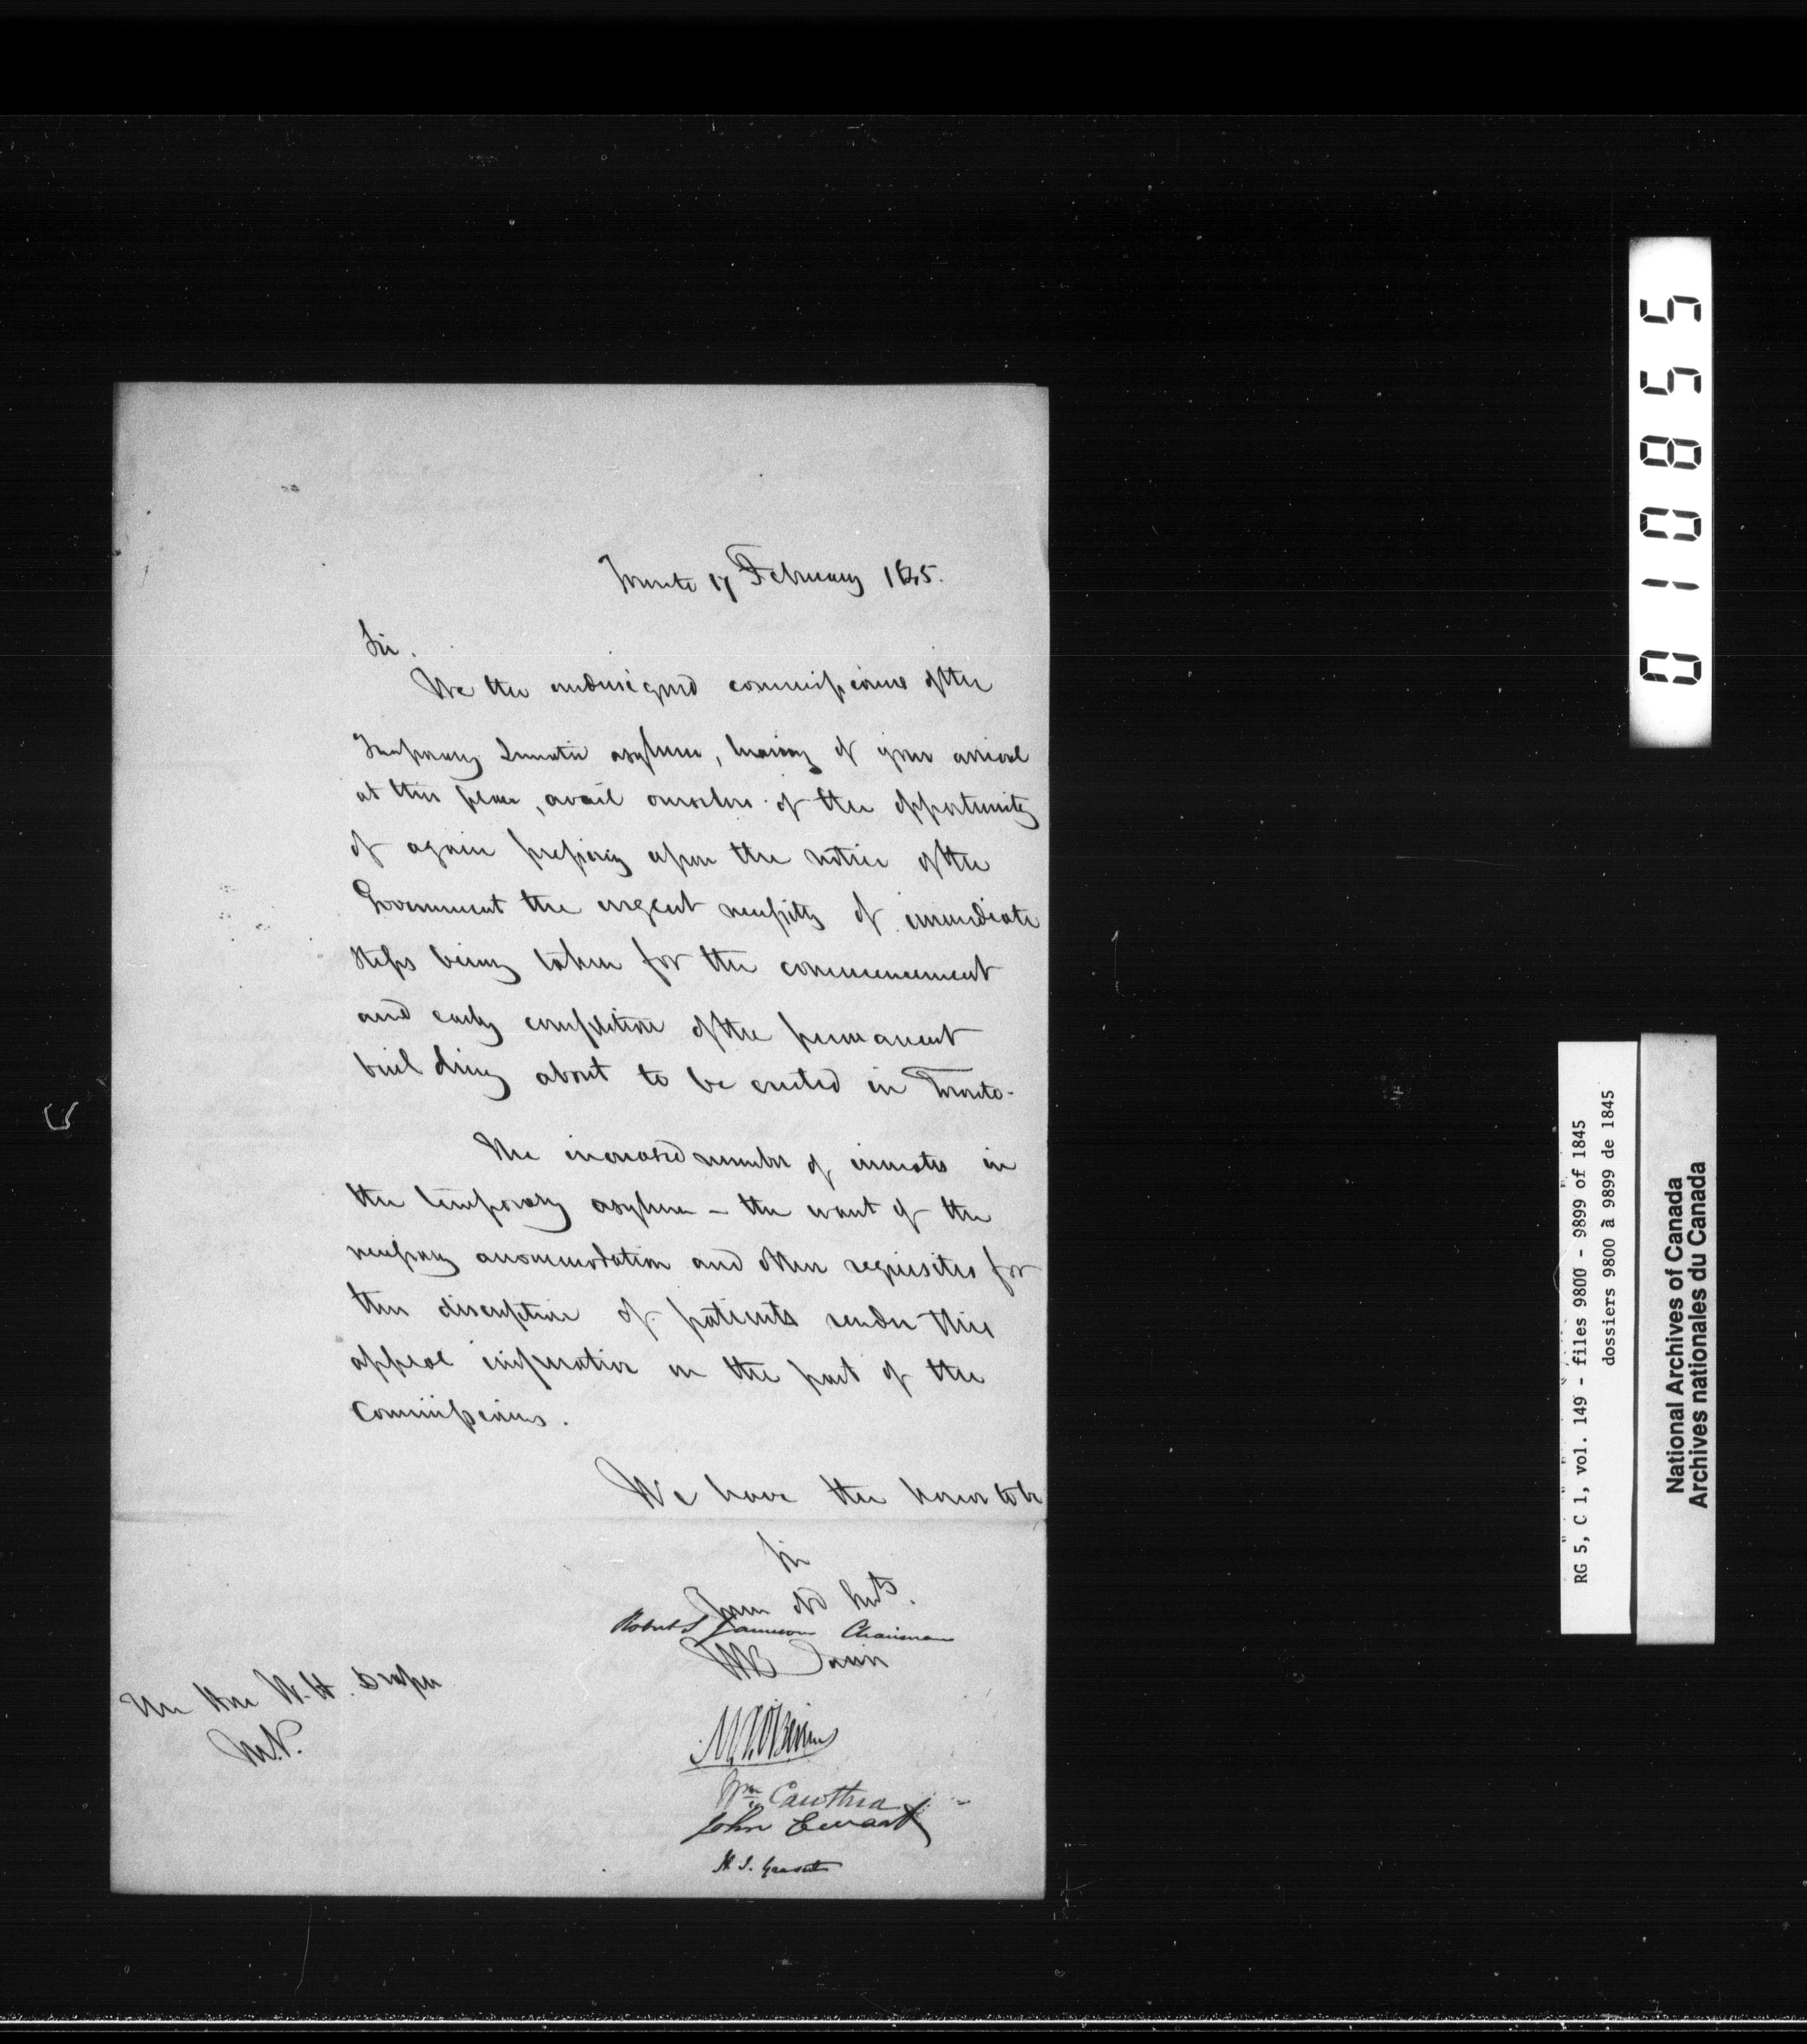 Toronto 17 February 1845.
Sir.
We the undersigned commissioners of the
Temporary Lunatic asylum, hearing of your arrival
at this place, avail ourselves of the opportunity
of again pressing upon the notice of the
Government the urgent necessity of immediate
steps being taken for the commencement
and early completion of the permanent
building about to be erected in Toronto-
The increased number of inmates in
the temporary asylum - the want of the
necessary accommodation and other requisites for
this description of patients render this
appeal imperative on the part of the
Commissioners.
We have the honor to be
Sir
Your Ob Servts.
Robert S Jameson Chairman
The Hon W. H. Draper
Wm Cawthra
John Ewart
H. J. Grasett
010855
RG 5, C 1, vol. 149 - files 9800 - 9899 of 1845
dossiers 9800 à 9899 de 1845
National Archives of Canada
Archives nationales du Canada